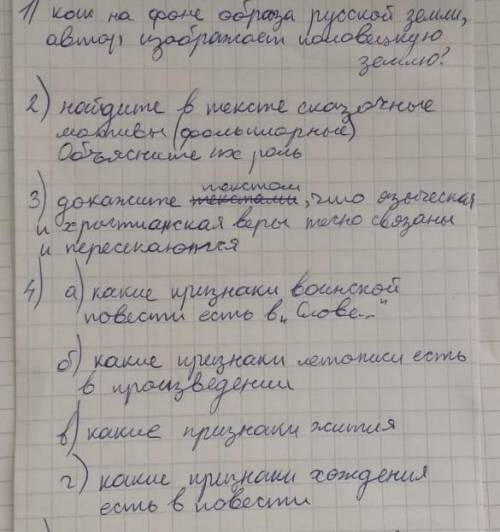 1) как на фоне образа русской земли,
автор изображает половецкую
землю?
2) найдите в тексте сказочные
мотивы (фольклорные)
Объясните их роль
текстом
3) докажите текстами, что языческая
и христианская веры тесно связаны
и пересекаются
4) а) какие признаки воинской
повести есть в „Слове..."
б) какие признаки летописи есть
в произведении
в) какие признаки жития
г) какие признаки хождения
есть в повести